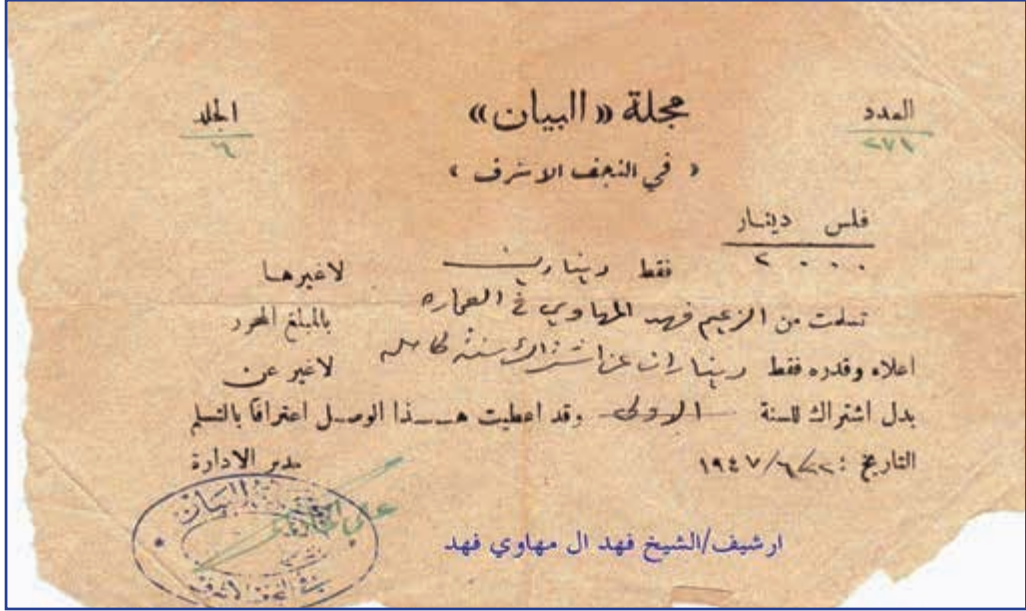 العدد
٢٧١
مجلة «البيان»
المجلد
٦
« في النجف الاشرف »
فلس دينار
٢٠٠٠
فقط دينارين لاغيرها
تسلمت من الزعيم فهد المهاوي في العماره بالمبلغ المحرر
اعلاه وقدره فقط ديناران عن اشتراك سنة كامله لاغير عن
بدل اشتراك للسنة الاولى وقد اعطيت هـــذا الوصل اعترافا بالتسلم
التاريخ : ٢٢/٦/١٩٤٧ مدير الادارة
البيان
ارشيف/الشيخ فهد ال مهاوي فهد